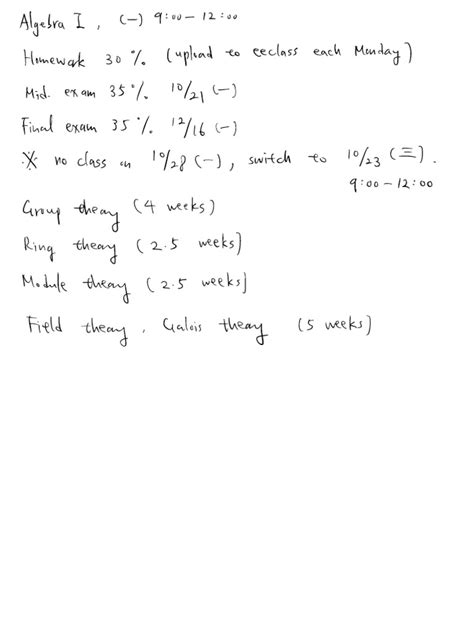 Algebra I , (一) 9:00 - 12:00
Homework 30 % (upload to eeclass each Monday)
Mid. exam 35 % 10/21 (一)
Final exam 35 % 12/16 (一)
※ no class on 10/28 (一) , switch to 10/23 (三) .
9:00 - 12:00
Group theory (4 weeks)
Ring theory (2.5 weeks)
Module theory (2.5 weeks)
Field theory , Galois theory (5 weeks)